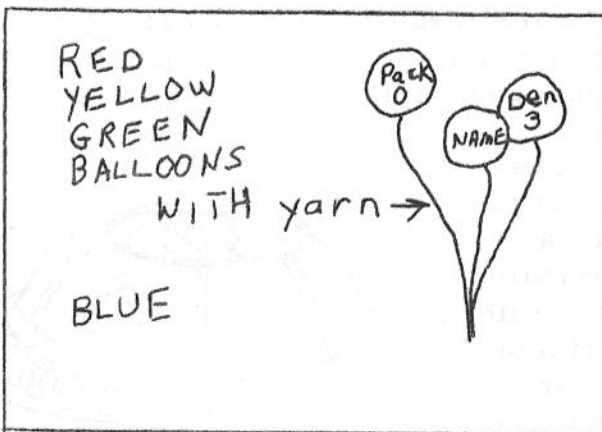 RED
YELLOW
GREEN
BALLOONS
WITH yarn
BLUE
Pack
0
NAME
Den
3